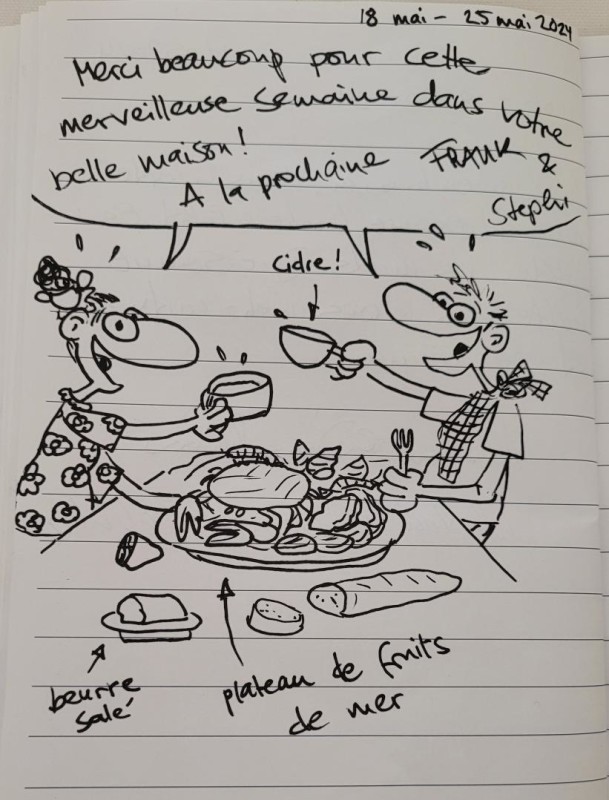 18 mai - 25 mai 2024
Merci beaucoup pour cette
merveilleuse semaine dans votre
belle maison!
A la prochaine FRANK &
Stephi
Cidre!
beurre
salé
plateau de fruits
de mer